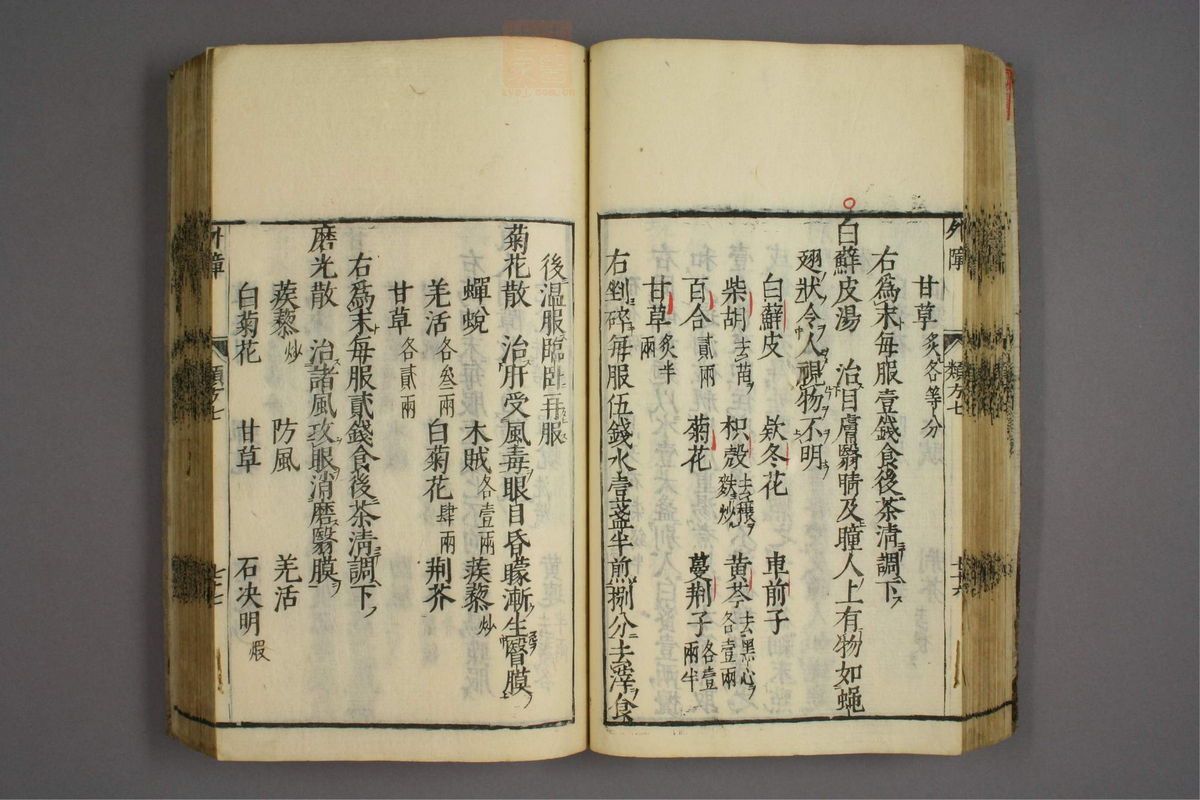 外障
類方七
七十六
甘草 炙各等分
右爲末每服壹錢食後茶清調下
白蘚皮湯 治目膚翳睛及瞳人上有物如蠅
翅狀令人視物不明
白蘚皮 欵冬花 車前子
柴胡 去苗 枳殼 去穰麩炒 黃芩 去黑心各壹兩
百合 貳兩 菊花 蔓荆子 各壹兩半
甘草 炙半兩
右剉碎每服伍錢水壹盞半煎捌分去滓食
後温服臨卧再服
菊花散 治肝受風毒眼目昏矇漸生瞖膜
蟬蛻 木賊 各壹兩 蒺藜 炒
羌活 各叁兩 白菊花 肆兩 荆芥
甘草 各貳兩
右爲末每服貳錢食後茶清調下
磨光散 治諸風攻眼消磨翳膜
蒺藜 炒 防風 羌活
白菊花 甘草 石决明 煆
外障
類方七
七十七